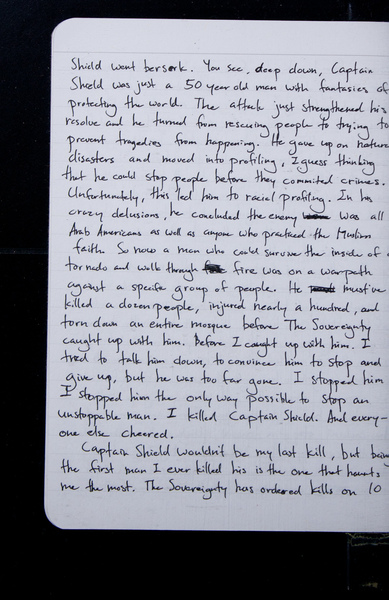 Shield went berserk. You see, deep down, Captain
Shield was just a 50 year old man with fantasies of
protecting the world. The attack just strengthened his
resolve and he turned from rescuing people to trying to
prevent tragedies from happening. He gave up on nature
disasters and moved into profiling, I guess thinking
that he could stop people before they commited crimes.
Unfortunately, this led him to racial profiling. In his
crazy delusions, he concluded the enemy was all
Arab Americans as well as anyone who practiced the Muslim
faith. So now a man who could survive the inside of a
tornado and walk through fire was on a warpath
against a specific group of people. He must've
killed a dozen people, injured nearly a hundred, and
torn down an entire mosque before The Sovereignty
caught up with him. Before I caught up with him. I
tried to talk him down, to convince him to stop and
give up, but he was too far gone. I stopped him
I stopped him the only way possible to stop an
unstoppable man. I killed Captain Shield. And every-
one else cheered.
Captain Shield wouldn't be my last kill, but being
the first man I ever killed his is the one that haunts
me the most. The Sovereignty has ordered kills on 10